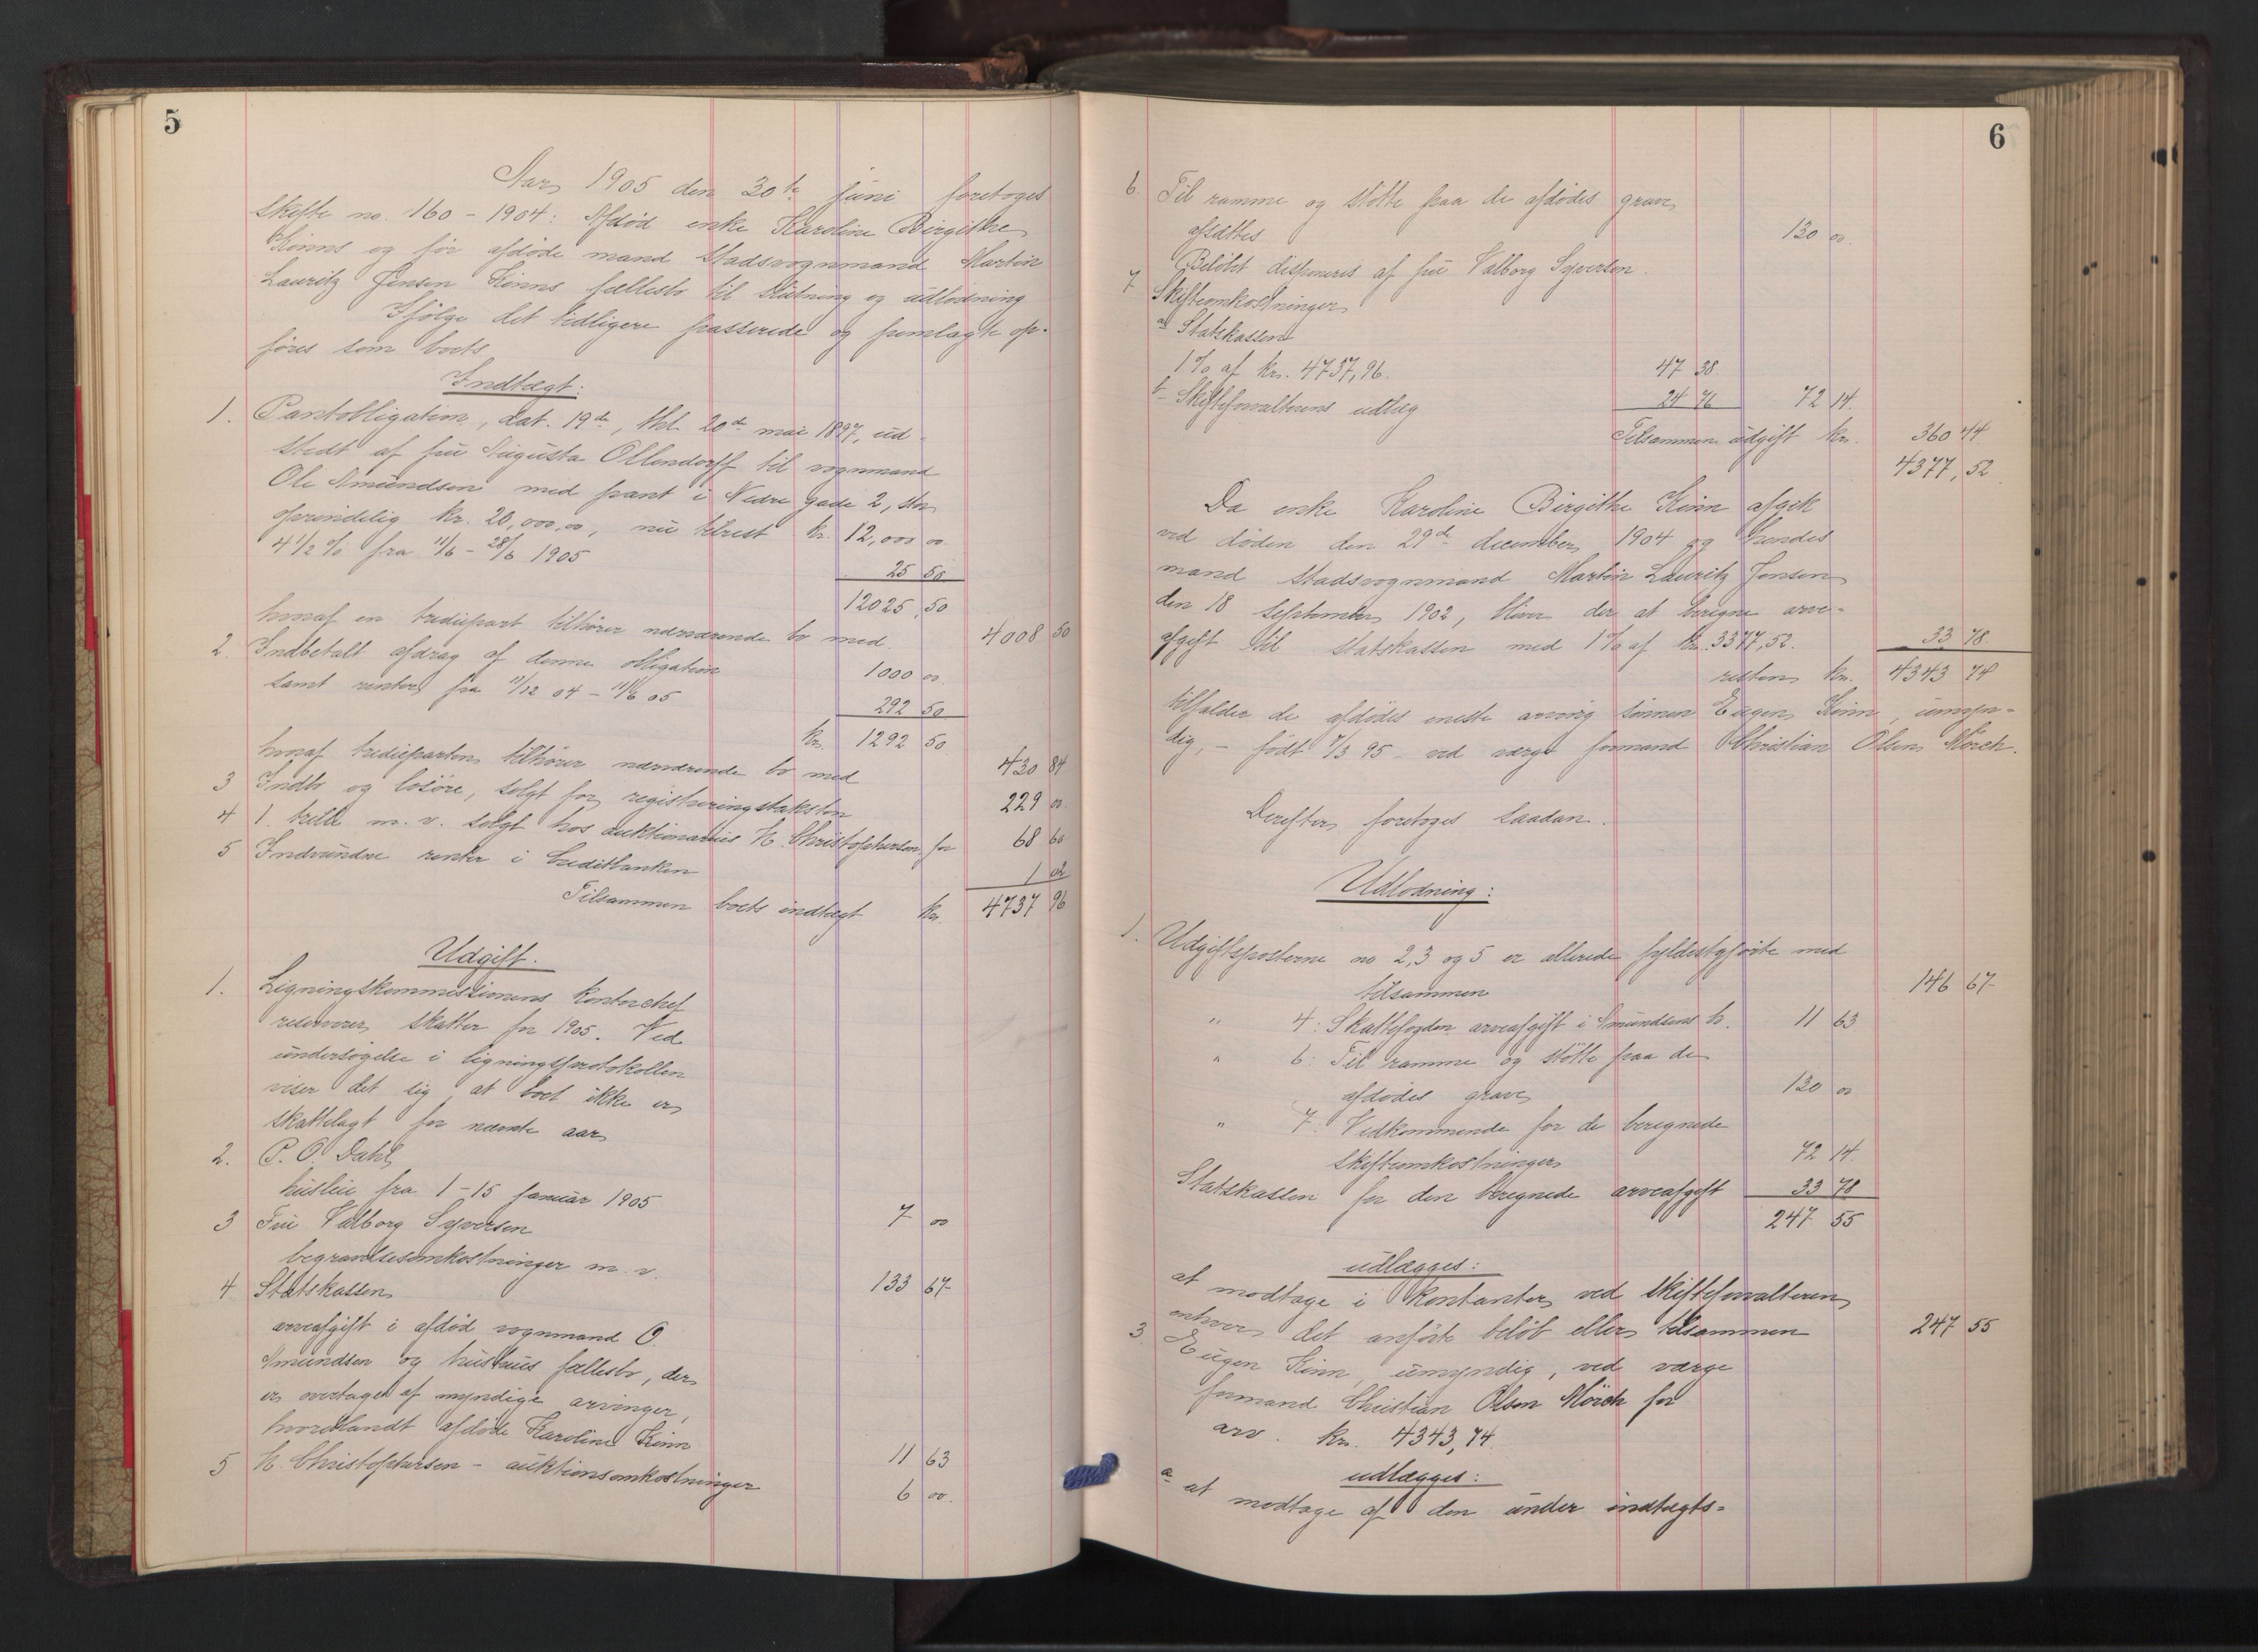 5
Aar 1905 den 30te juni foretoges
skifte no. 160 - 1904: Afdød enke Karoline Birgithe
Kinns og før afdøde mand stadsvognmand Martin
Lauritz Jensen Kinns fællesbo til slutning og udlodning
Ifølge det tidligere passerede og fremlagte op-
føres som boets
Indtægt:
1. Pantobligation, dat. 19de, thl. 20de mai 1897, ud-
stedt af fru Augusta Ollendorff til vognmand
Ole Amundsen med pant i Nedre gade 2, stor
oprindelig kr. 20,000,00, nu tilrest kr. 12,000 00
4 1/2 % fra 11/6 - 28/6 1905 25 50
12025,50
hvoraf en trediepart tilhører nærværende bo med 4008 50
2. Indbetalt afdrag af denne obligation 1000 00
samt renter fra 11/12 04 - 11/6 05 292 50
kr. 1292 50
hvoraf trediepartens tilhører nærværende bo med 430 84
3 Indbo og løsøre, solgt for registreringstaksten 229 00
4 1 trille m. v. solgt hos auktionarius H. Christophersen for 68 60
5 Indvundne renter i Creditbanken 1 02
Tilsammen boets indtægt kr. 4737 96
Udgift.
1. Ligningskommissionens kontorchef
reserverer skatter for 1905. Ved
undersøgelse i ligningsprotokollen
viser det sig at boet ikke er
skattelagt for nævnte aar
2. P. O. Dahl
husleie fra 1-15 januar 1905 7 00
3 Fru Valborg Syversen
begravelsesomkostninger m. v. 133 67
4 Statskassen
arveafgift i afdød vognmand O.
Amundsen og hustrus fællesbo, der
er overtaget af myndige arvinger,
hvoriblandt afdøde Karoline Kinn 11 63
5 H. Christophersen - auktionsomkostninger 6 00
6
6. Til ramme og støtte paa de afdødes grave
afsættes 130 00
Beløbet disponeres af fru Valborg Syversen.
7 Skifteomkostninger
a Statskassen
1 % af kr. 4737,96. 47 38
b Skifteforvalterens udlæg 24 76 72 14
Tilsammen udgift kr. 360 44
4377,52
Da enke Karoline Birgithe Kinn afgik
ved døden den 29de december 1904 og hendes
mand stadsvognmand Martin Lauritz Jensen
den 18 september 1902, bliver der at beregne arve-
afgift til statskassen med 1 % af kr. 3377,52. 33 78
resten kr. 4343 74
tilfalder de afdødes eneste arving sønnen Eugen Kinn, umyn-
dig, - født 7/3 95 - ved værge formand Christian Olsen Mörch.
Derefter foretoges saadan.
Udlodning:
1. Udgiftsposterne no 2, 3 og 5 er allerede fyldestgjorte med
tilsammen 146 67
" 4: Skattefogden arveafgift i Amundsens bo. 11 63
" 6: Til ramme og støtte paa de
afdødes grave 130 00
" 7: Vedkommende for de beregnede
skifteomkostninger 72 14
Statskassen for den beregnede arveafgift 33 78
247 55
udlægges:
at modtage i kontanter ved skifteforvalteren
enhver det anførte beløb eller tilsammen 247 55
3. Eugen Kinn, umyndig, ved værge
formand Christian Olsen Mörch for
arv. kr. 4343,74.
udlægges:
a at modtage af den under indtægts-